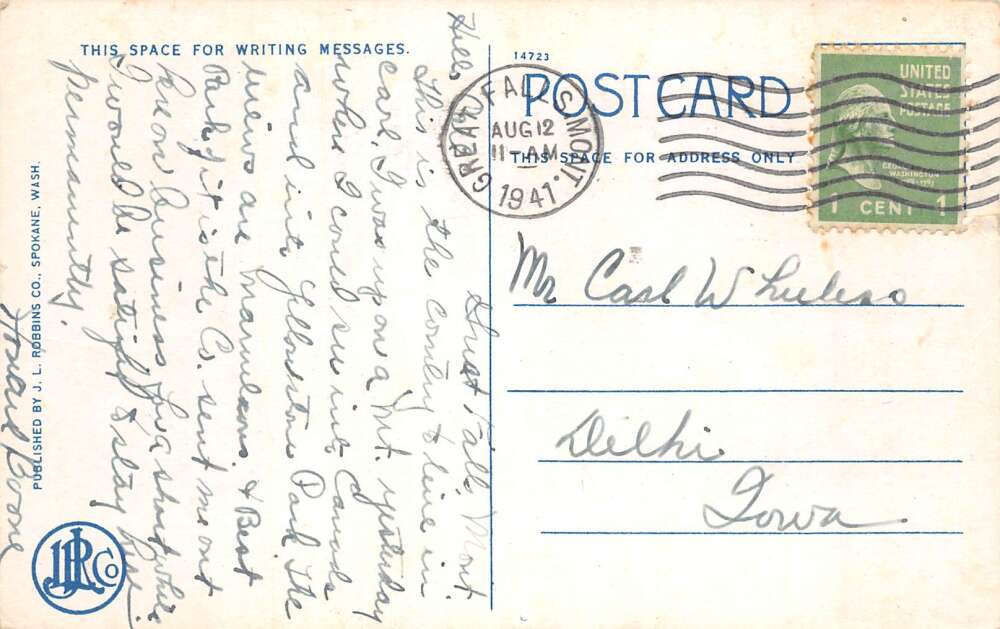 THIS SPACE FOR WRITING MESSAGES.
Great Falls, Mont
Hello
This is the contry to live in
Carl. I was up on a Mt. yesterday
where I could see into Canada
and into Yellowstone Park. The
views are marvelous. & Best
Part of it is the Co. sent me out
here on business for a short while
I would be satisfy to stay here
permanently.
Howard Boone
PUBLISHED BY J. L. ROBBINS CO., SPOKANE, WASH.
JLR Co
14723
POST CARD
THIS SPACE FOR ADDRESS ONLY
GREAT FALLS, MONT.
AUG 12
11-AM
1941
UNITED
STATES
POSTAGE
GEORGE
WASHINGTON
1 CENT 1
Mr Carl Wheeless
Delhi
Iowa